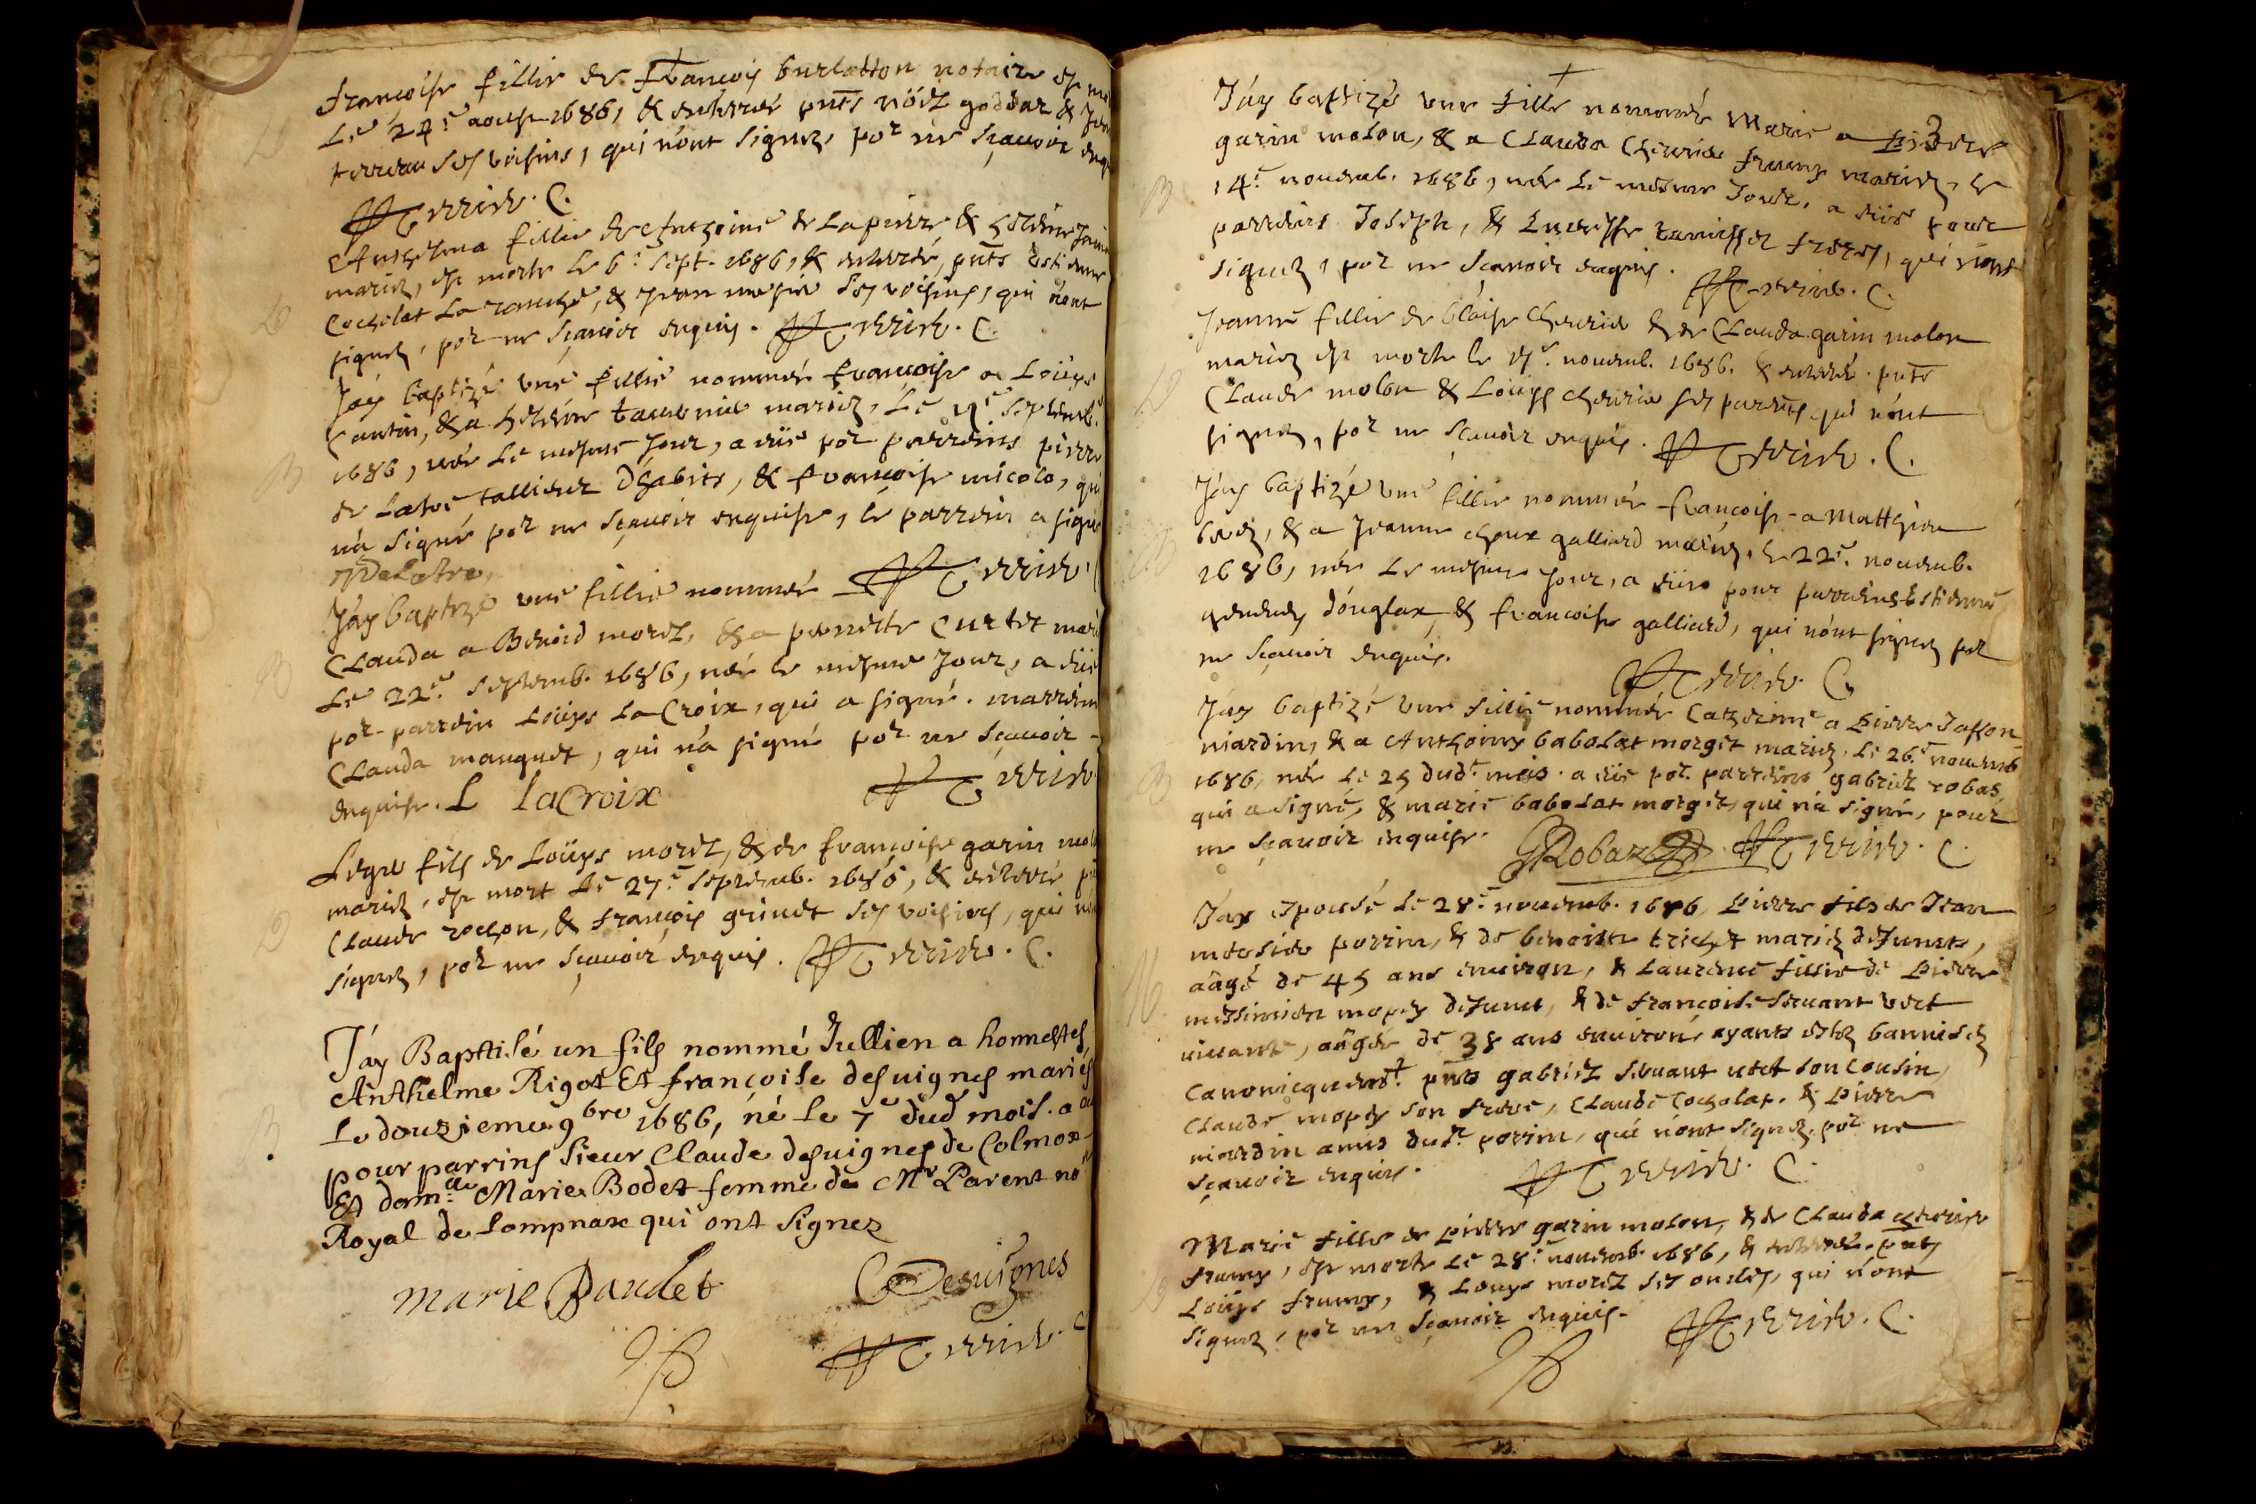 francoise fillie de francois burlatton notaire est mo
Le 24e aoust 1686, & enterrée pnts nöel goddar & Jean
terreau ses voisins, qui n'ont signez, por ne sçauoir enq
Perrier. C.
Anthelma fillie de Anthoine de Lapierre & heleine
mariez, est morte le 6e sept. 1686, & enterrée, pnts Estienne
Cocholat La ranche, & Jean ses voisins, qui n'ont
signez, por ne sçauoir enquis. Perrier. C.
Jay baptizé une fillie nommée francoise a Loüys
Cantin, & a heleine mariez, Le septemb.
1686, née le mesme Jour, a eüe por parreins pierre
de Latre tallieur d'habits, & francoise micolo, qui
n'a signé por ne sçauoir enquise, le parrein a signé
DeLatre,
Jay baptizé une fillie nommée Perrier
Clauda a Benoid morel, & a pernette Curtet mari
Le 22e. septemb. 1686, née le mesme Jour, a eüe
por parrein Loüys LaCroix, qui a signé. marreine
Clauda mauguet, qui n'a signé por ne sçauoir
enquise. L laCroix Perrier
fils de Loüys morel, & de francoise garin mol
mariez, est mort Le 27e septemb. 1686, & enterré p
Claude rochon, & francois ses voisins, qui n
signez, por ne sçauoir enquis. Perrier. C.
Jay Baptisé un fils nommé Jullien a honnestes
Anthelme Rigot Et françoise desuignes mariés
Le douzieme 9bre 1686, né le 7e dud mois. a eu
pour parrins Sieur Claude desuignes de Colmon
Et damlle Marie Bodet femme de Mr Parent no
Royal de Lompnax qui ont signez
marie Baudet CDesuignes
Perrier. C
Jay baptizé une fille nommée Marie a Pierre
garin molon, & a Clauda Cheurier frumy mariez, le
14e nouemb. 1686, née le mesme Jour. a eüe pour
parreins Joseph, & freres, qui n'ont
signez, por ne sçauoir enquis. Perrier. C.
Jeanne fillie de blaise Cheurier & de Clauda garin molon
mariez est morte le 17e. nouemb. 1686. & enterée. pnts
Claude molon & Loüys cheurier ses parents qui n'ont
signez, por ne sçauoir enquis. Perrier. C.
Jay baptizé une fillie nommée francoise a Matthieu
& a Jeanne choux galliard mariez, le 22e. nouemb.
1686, née Le mesme Jour, a eüe pour parreins Estienne
douglax, & francoise galliard, qui n'ont signez por
ne sçauoir enquis.
Perrier. C.
Jay baptizé une fillie nommée Catherine a Pierre Jasson
niardin, & a Anthoinne babolat morget mariez. le 26e nouemb
1686, née le 25 dudt mois. a eüe por. parreins gabriel robas
qui a signé, & marie babolat morget, qui n'a signé, pour
ne sçauoir enquise. GRobaz Perrier. C.
Jay espousé le 28e. nouemb. 1686 Pierre fils de Jean
perrin, & de benoiste mariez defunts,
aâgé de 45 ans enuiron, & Laurence fillie de Pierre
defunct, & de francoise seruant vert
viuante, aâgée de 38 ans enuiron ayants estez
Canonicquemt. pnts gabriel seruant vert son Cousin,
Claude son frere, Claude Cocholat. & Pierre
niardin amis dudt. perrin, qui n'ont signez. por ne
sçauoir enquis. Perrier. C.
Marie fille de Pierre garin molon, & de Clauda cheurier
frumy, est morte le 28e. nouemb. 1686, & enterrée. pnts
Loüys frumy, & Louys morel ses oncles, qui n'ont
signez, por ne sçauoir enquis. Perrier. C.